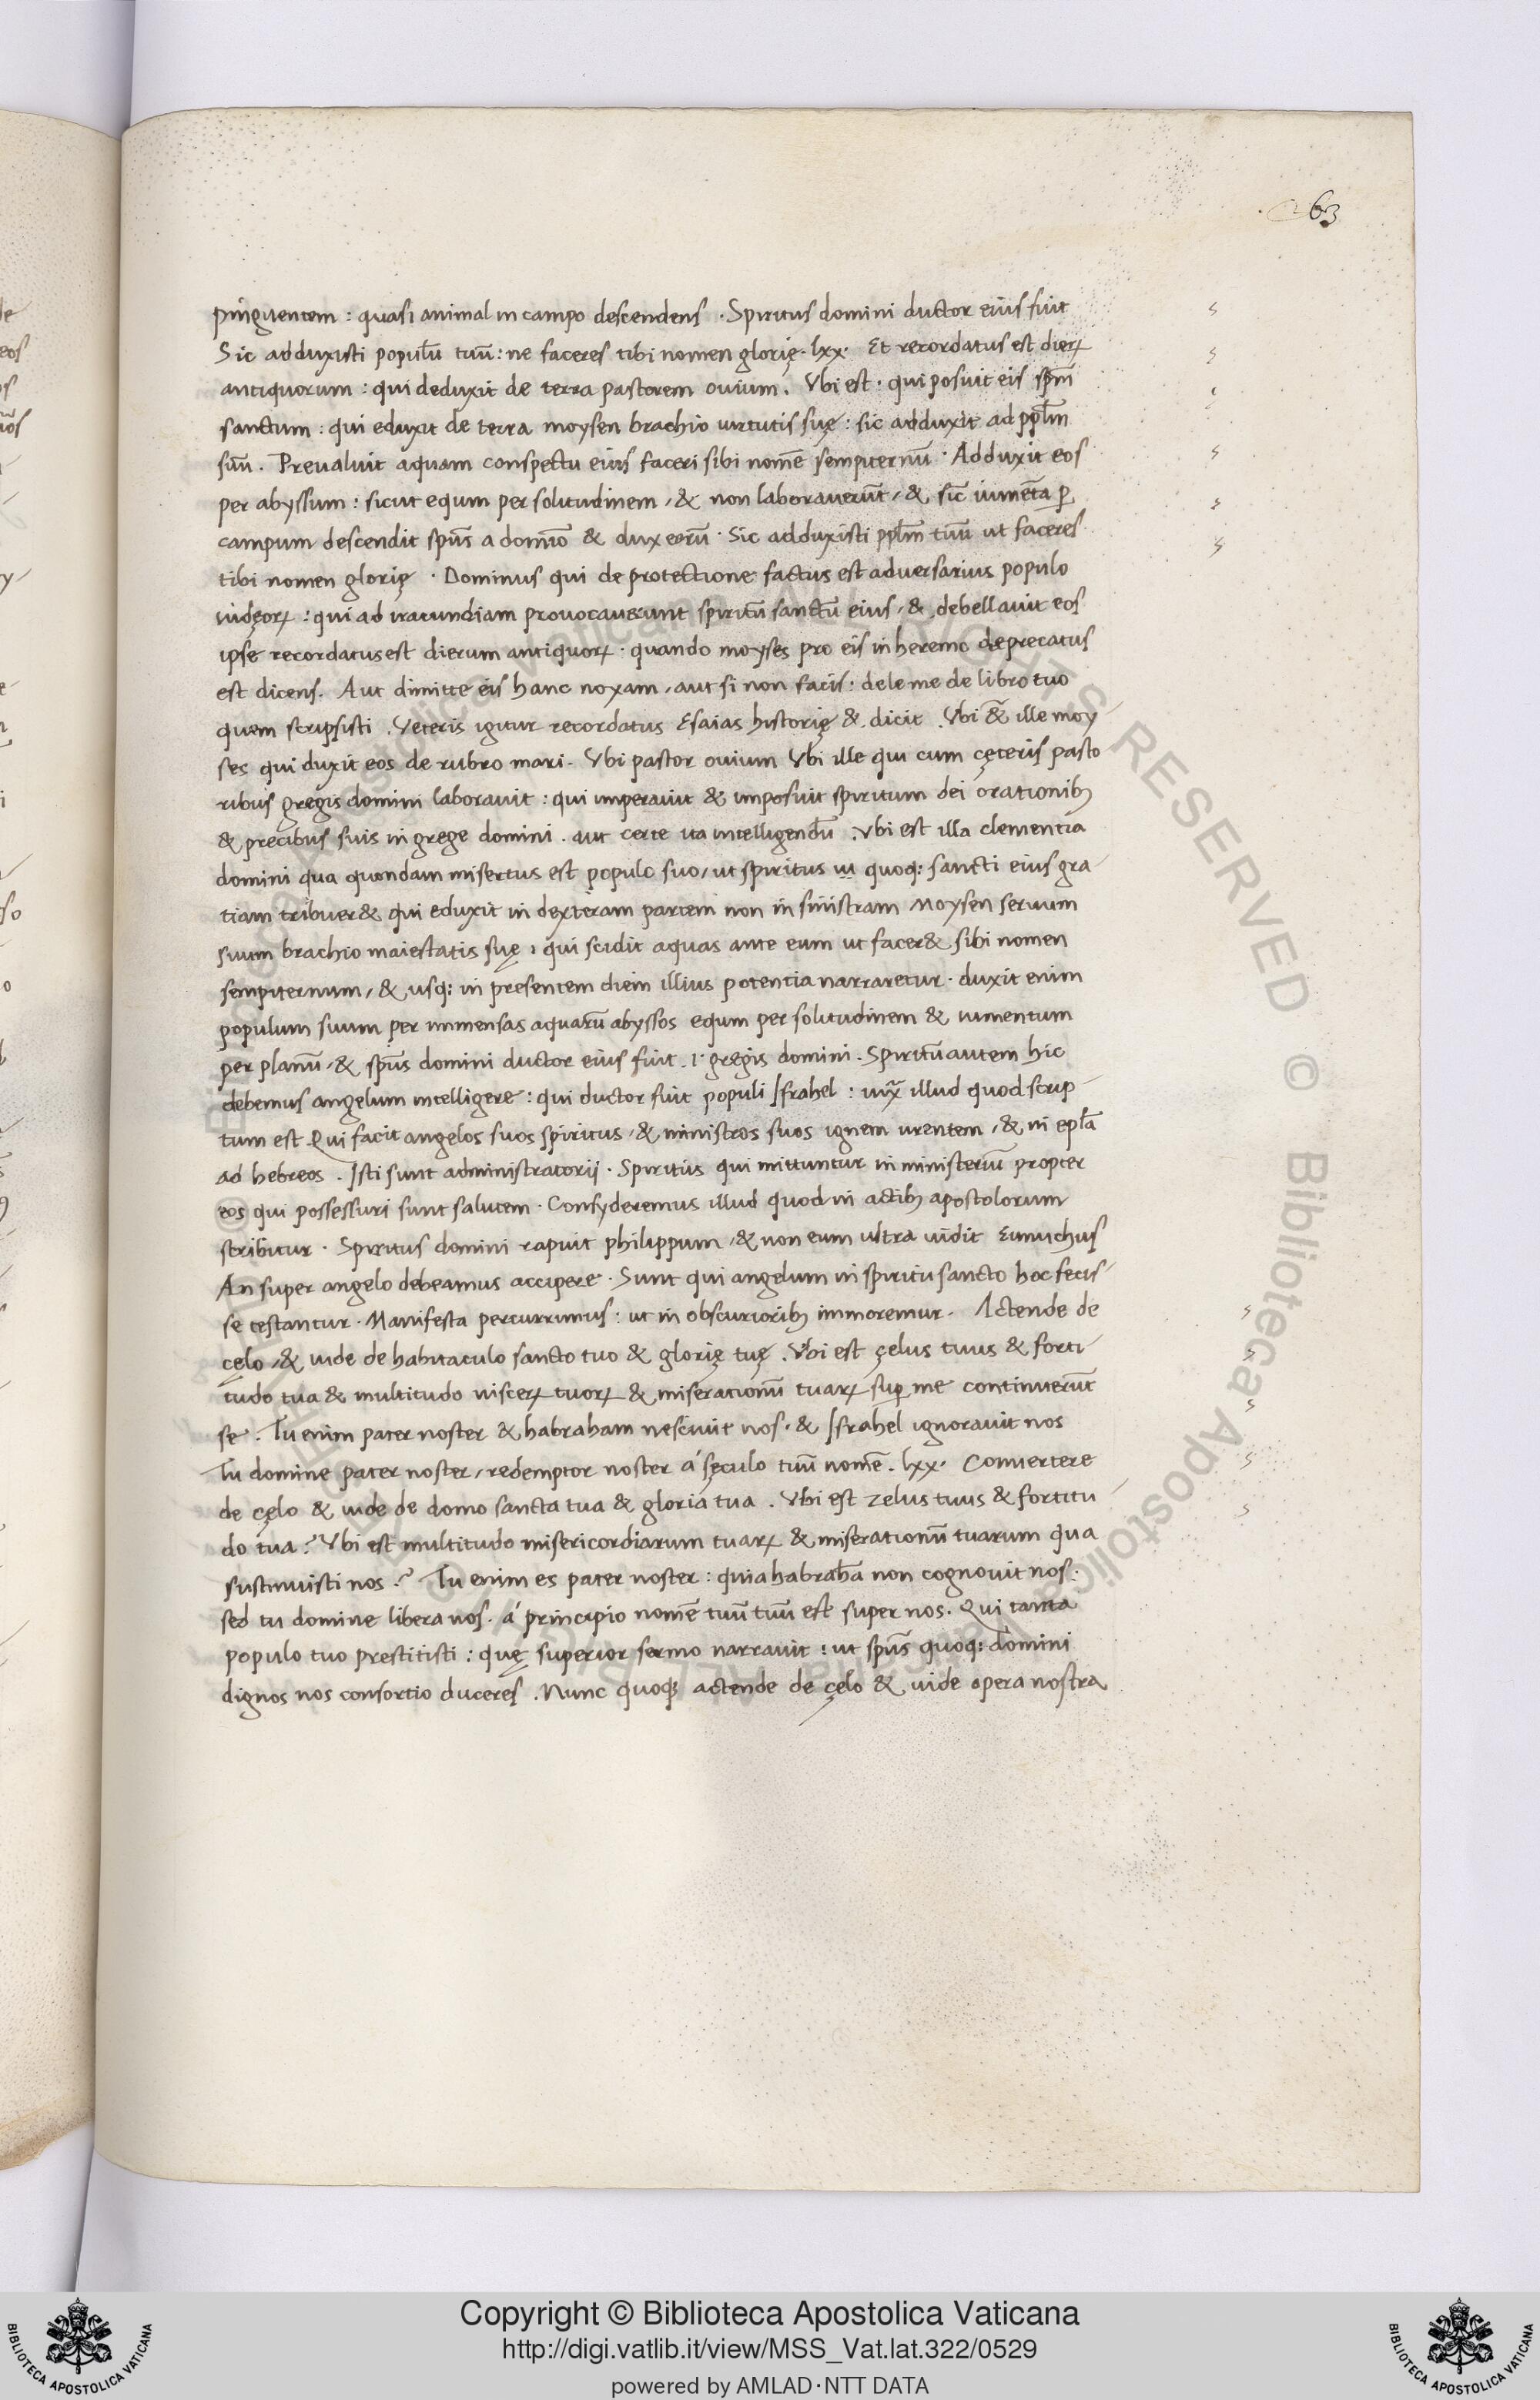 263
pinguentem : quasi animal in campo descendens . Spiritus domini ductor eius fuit
Sic adduxisti populū tuū : ne faceres tibi nomen glorię . lxx . Et recordatus est dieꝝ
antiquorum : qui deduxit de terra pastorem ovium . Ubi est . qui posuit eis spm̄
sanctum : qui eduxit de terra moysen brachio virtutis suę : sic adduxit ad ppl̄m
suū . Prevaluit aquam conspectu eius faceri sibi nomē sempiternū . Adduxit eos
per abyssum : sicut equm per solitudinem , & non laboraverūt , & sic̄ iumēta ꝑ
campum descendit spūs a domīo & dux eorū . Sic adduxisti ppl̄m tuū ut faceres
tibi nomen glorię . Dominus qui de protectione factus est adversarius populo
iudęoꝝ : qui ad iracundiam provocaverunt spiritū sanctū eius , & debellavit eos
ipse recordatus est dierum antiquoꝝ . quando moyses pro eis in heremo deprecatus
est dicens . Aut dimitte eis hanc noxam , aut si non facis : dele me de libro tuo
quem scripsisti . Veteris igitur recordatus Esaias historię & dicit . Ubi &̄ ille moy
ses qui duxit eos de rubro mari . Ubi pastor ovium Ubi ille qui cum cęteris pasto
ribus gregis domini laboravit : qui imperavit & imposuit spiritum dei orationibꝫ
& precibus suis in grege domini . aut certe ita intelligendū . Ubi est illa clementia
domini qua quondam misertus est populo suo , ut spiritus quoq: sancti eius gra
tiam tribuer& qui eduxit in dexteram partem non in sinistram Moysen servum
suum brachio maiestatis suę : qui scidit aquas ante eum ut facer& sibi nomen
sempiternum , & usq: in presentem diem illius potentia narraretur . duxit enim
populum suum per immensas aquarū abyssos equm per solitudinem & iumentum
per planū , & spūs domini ductor eius fuit . i . gregis domini . Spiritū autem hic
debemus angelum intelligere : qui ductor fuit populi Israhel : iux̄ illud quod scrip
tum est Qui facit angelos suos spiritus , & ministros suos ignem urentem , & in epl̄a
ad hebreos . Isti sunt administratorij . Spiritus qui mittuntur in ministeriū propter
eos qui possessuri sunt salutem . Consyderemus illud quod in actibꝫ apostolorum
scribitur . Spiritus domini rapuit philippum , & non eum ultra vidit Eunuchus
An super angelo debeamus accipere . Sunt qui angelum in spiritu sancto hoc fecis
se testantur . Manifesta percurrimus : ut in obscurioribꝫ immoremur . Actende de
cęlo , & vide de habitaculo sancto tuo & glorię tuę . Ubi est çelus tuus & forti
tudo tua & multitudo visceꝝ tuoꝝ & miserationū tuaꝝ suꝑ me continuerūt
se . Tu enim pater noster & habraham nescivit nos . & Israhel ignoravit nos
Tu domine pater noster , redemptor noster á sęculo tuū nomē . lxx . Convertere
de cęlo & vide de domo sancta tua & gloria tua . Ubi est zelus tuus & fortitu
do tua ? Ubi est multitudo misericordiarum tuaꝝ & miserationū tuarum qua
sustinuisti nos . ? Tu enim es pater noster : quia habrahā non cognovit nos .
sed tu domine libera nos . á principio nomē tuū tuū est super nos . Qui tanta
populo tuo prestitisti : quę superior sermo narravit : ut spūs quoq: domini
dignos nos consortio duceres . Nunc quoqꝫ actende de cęlo & vide opera nostra
Copyright © Biblioteca Apostolica Vaticana
http://digi.vatlib.it/view/MSS_Vat.lat.322/0529
powered by AMLAD·NTT DATA